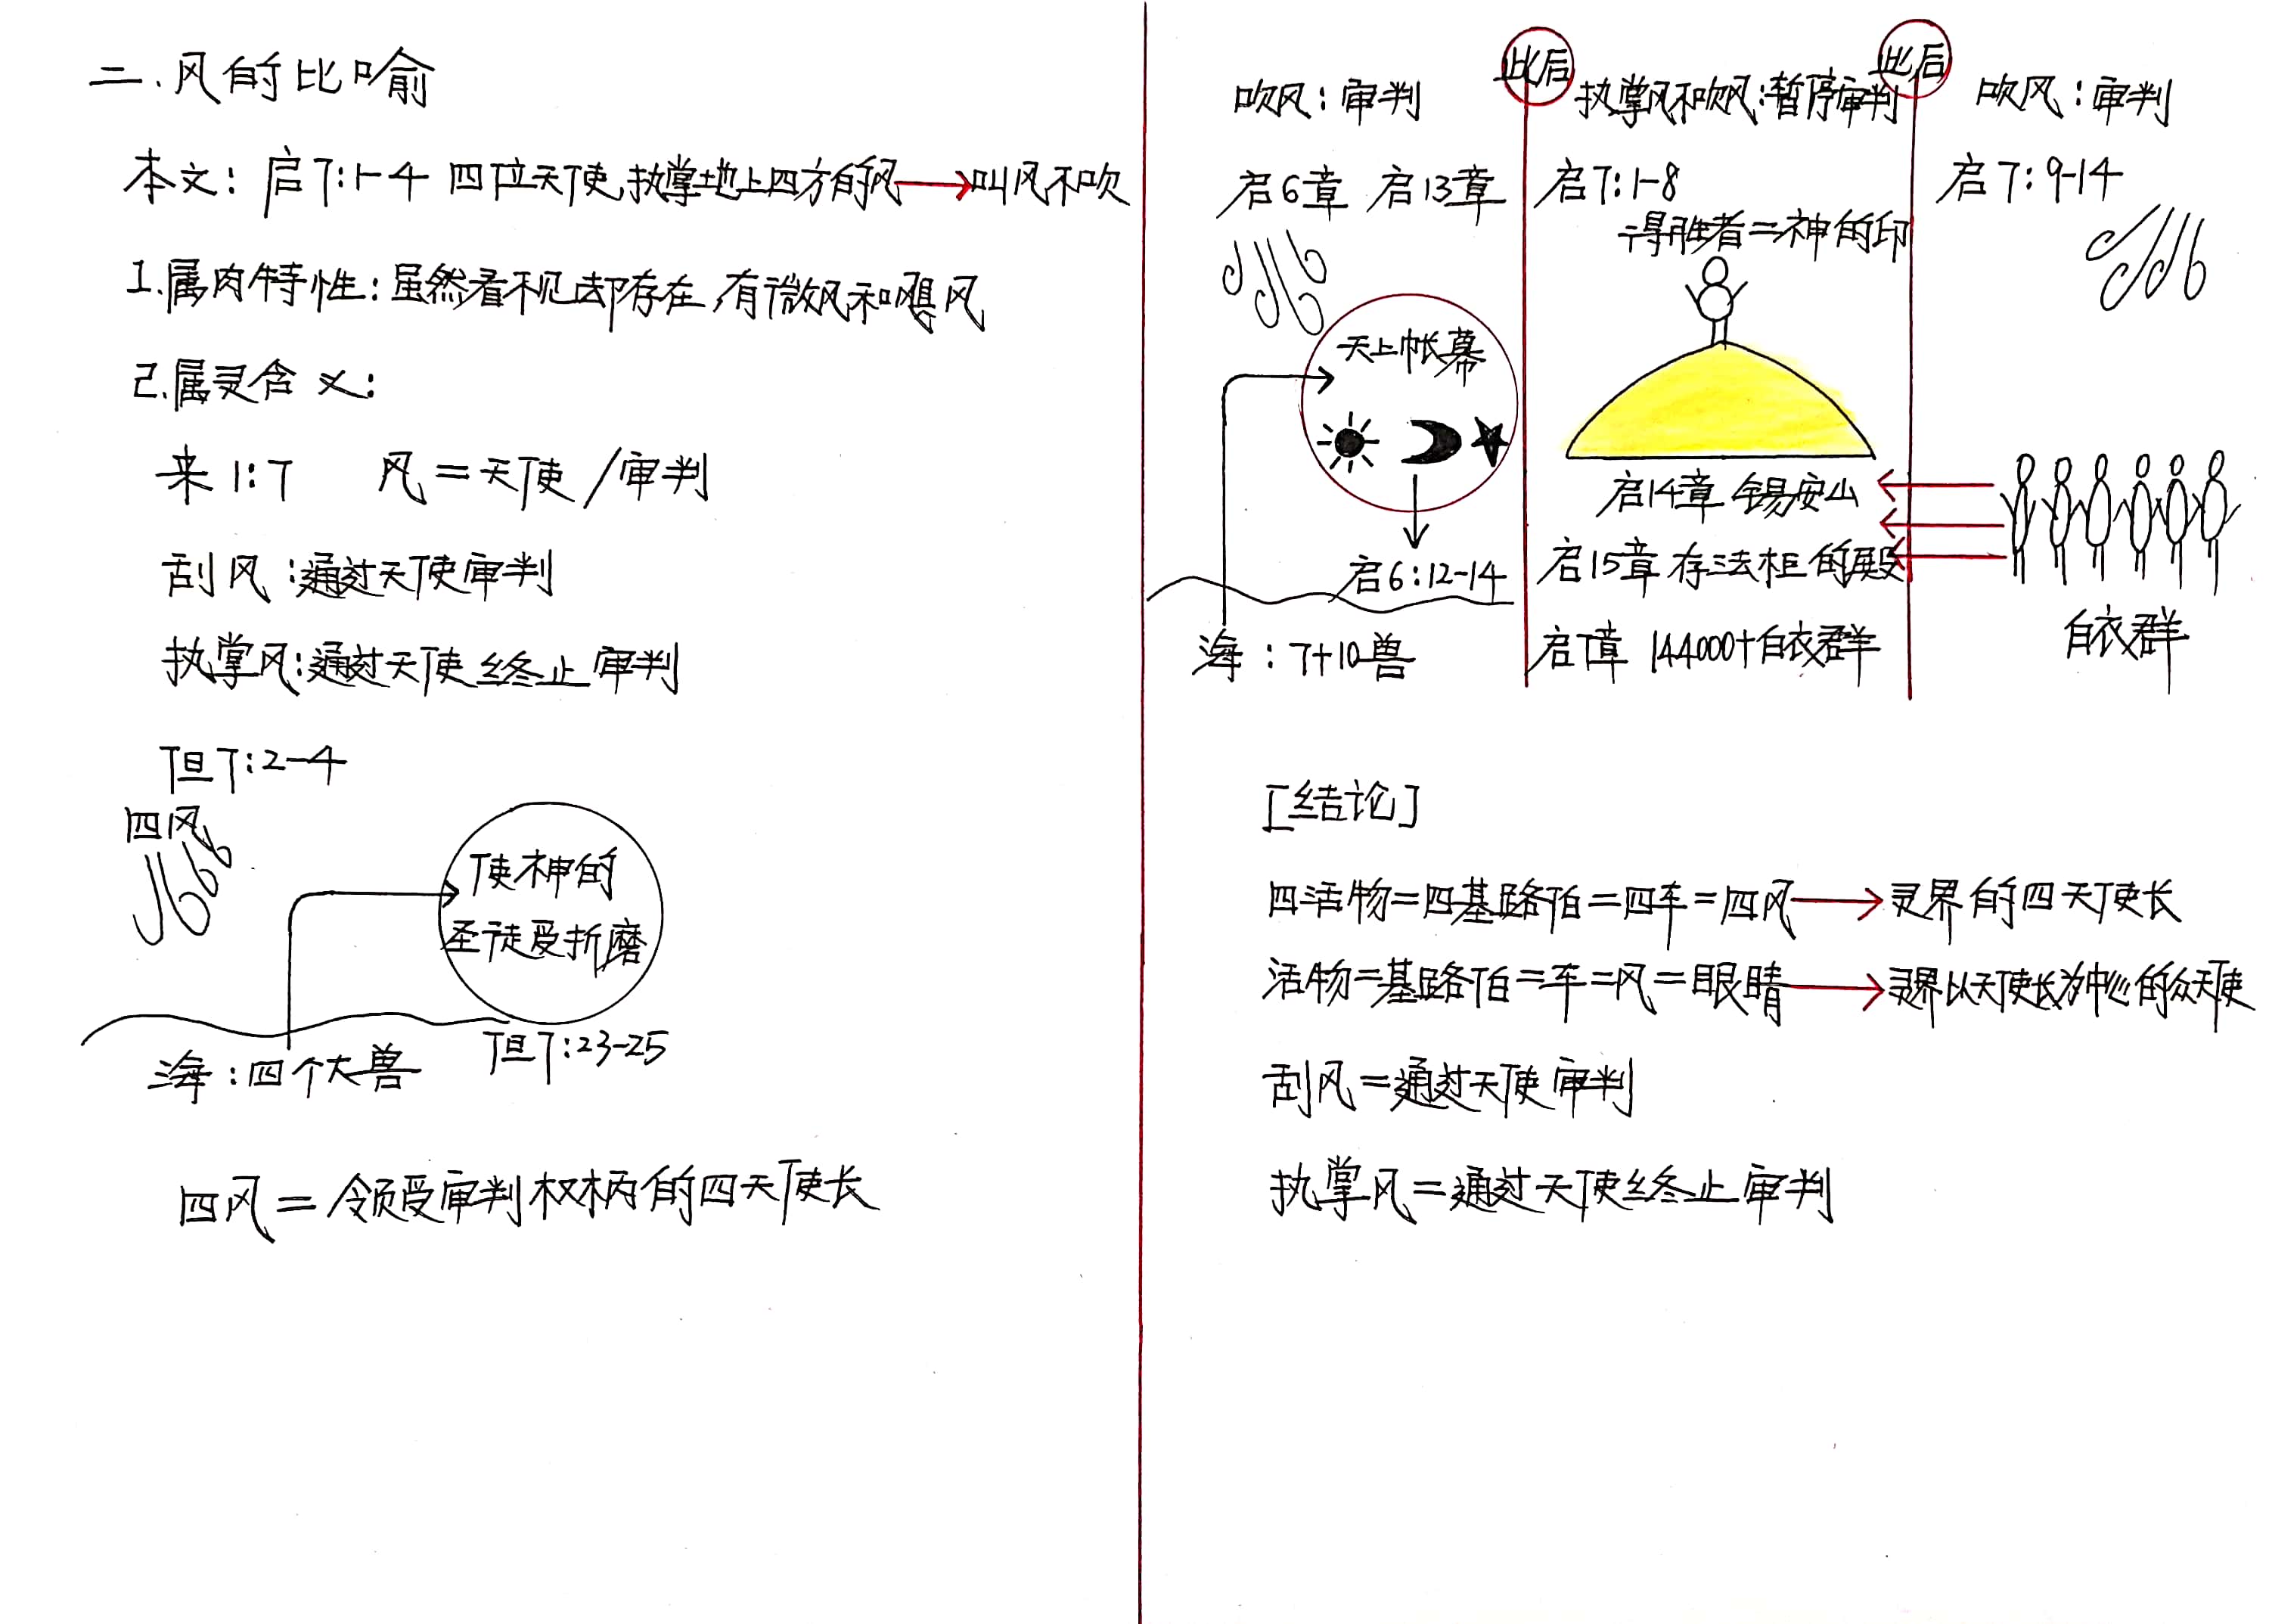 二.风的比喻
本文：启7:1-4 四位天使,执掌地上四方的风→叫风不吹
1.属肉特性：虽然看不见却存在,有微风和飓风
2.属灵含义：
来1:7 风=天使/审判
刮风：通过天使审判
执掌风：通过天使终止审判
但7:2-4
四风
使神的
圣徒受折磨
海：四个大兽
但7:23-25
四风=领受审判权柄的四天使长
此后
此后
吹风：审判
执掌风不吹风：暂停审判
吹风：审判
启6章 启13章
启7:1-8
启7:9-14
得胜者=神的印
天上帐幕
启14章 锡安山
启6:12-14
启15章 存法柜的殿
海：7+10兽
启7章 144000+白衣群
白衣群
[结论]
四活物=四基路伯=四车=四风→灵界的四天使长
活物=基路伯=车=风=眼睛→灵界以天使长为中心的众天使
刮风=通过天使审判
执掌风=通过天使终止审判